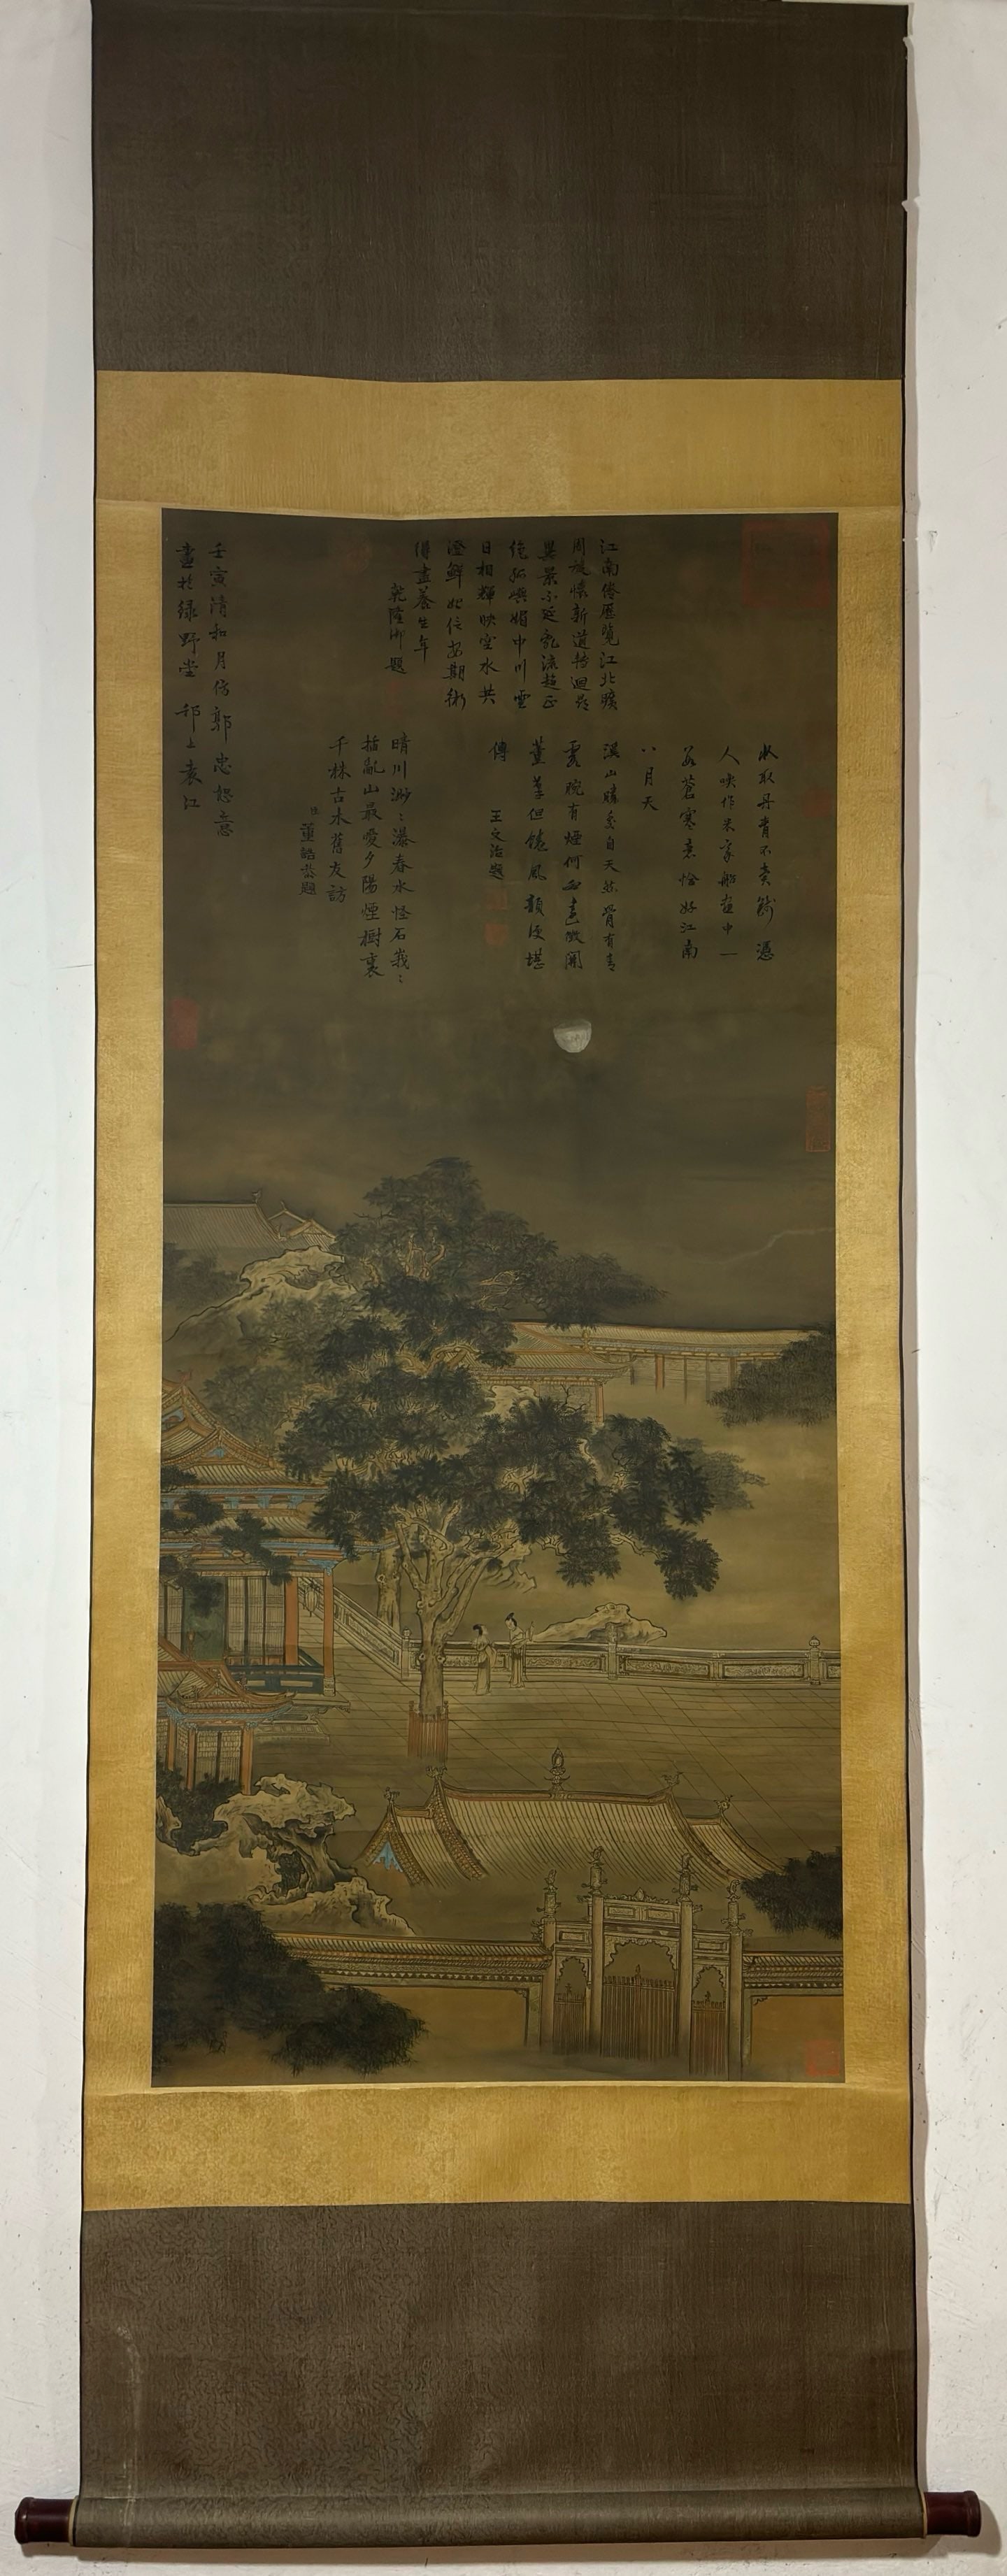 取丹青不賣錢憑
人映作米家船畫中一
蒼寒意恰好江南
八月天
溪山晴色自天然骨有青
霞腕有煙何必遠徵關
董筆但饒風韻便堪
傳
王文治題
江南倦歷覽江北曠
周旋懷新道轉迴尋
異景不延亂流趨正
絕孤嶼媚中川雲
日相輝映空水共
澄鮮始信安期術
得盡養生年
乾隆御題
晴川渺〻瀑春水怪石我〻
插亂山最愛夕陽煙樹裏
千株古木舊友訪
臣董誥恭題
壬寅清和月仿郭忠恕意
畫於綠野堂 邗上袁江